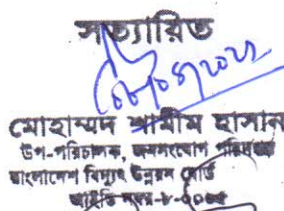 সত্যায়িত
মোহাম্মদ শামীম হাসান
উপ-পরিচালক, জনসংযোগ পরিদপ্তর
বাংলাদেশ বিদ্যুৎ উন্নয়ন বোর্ড
আইডি নম্বর-৮-